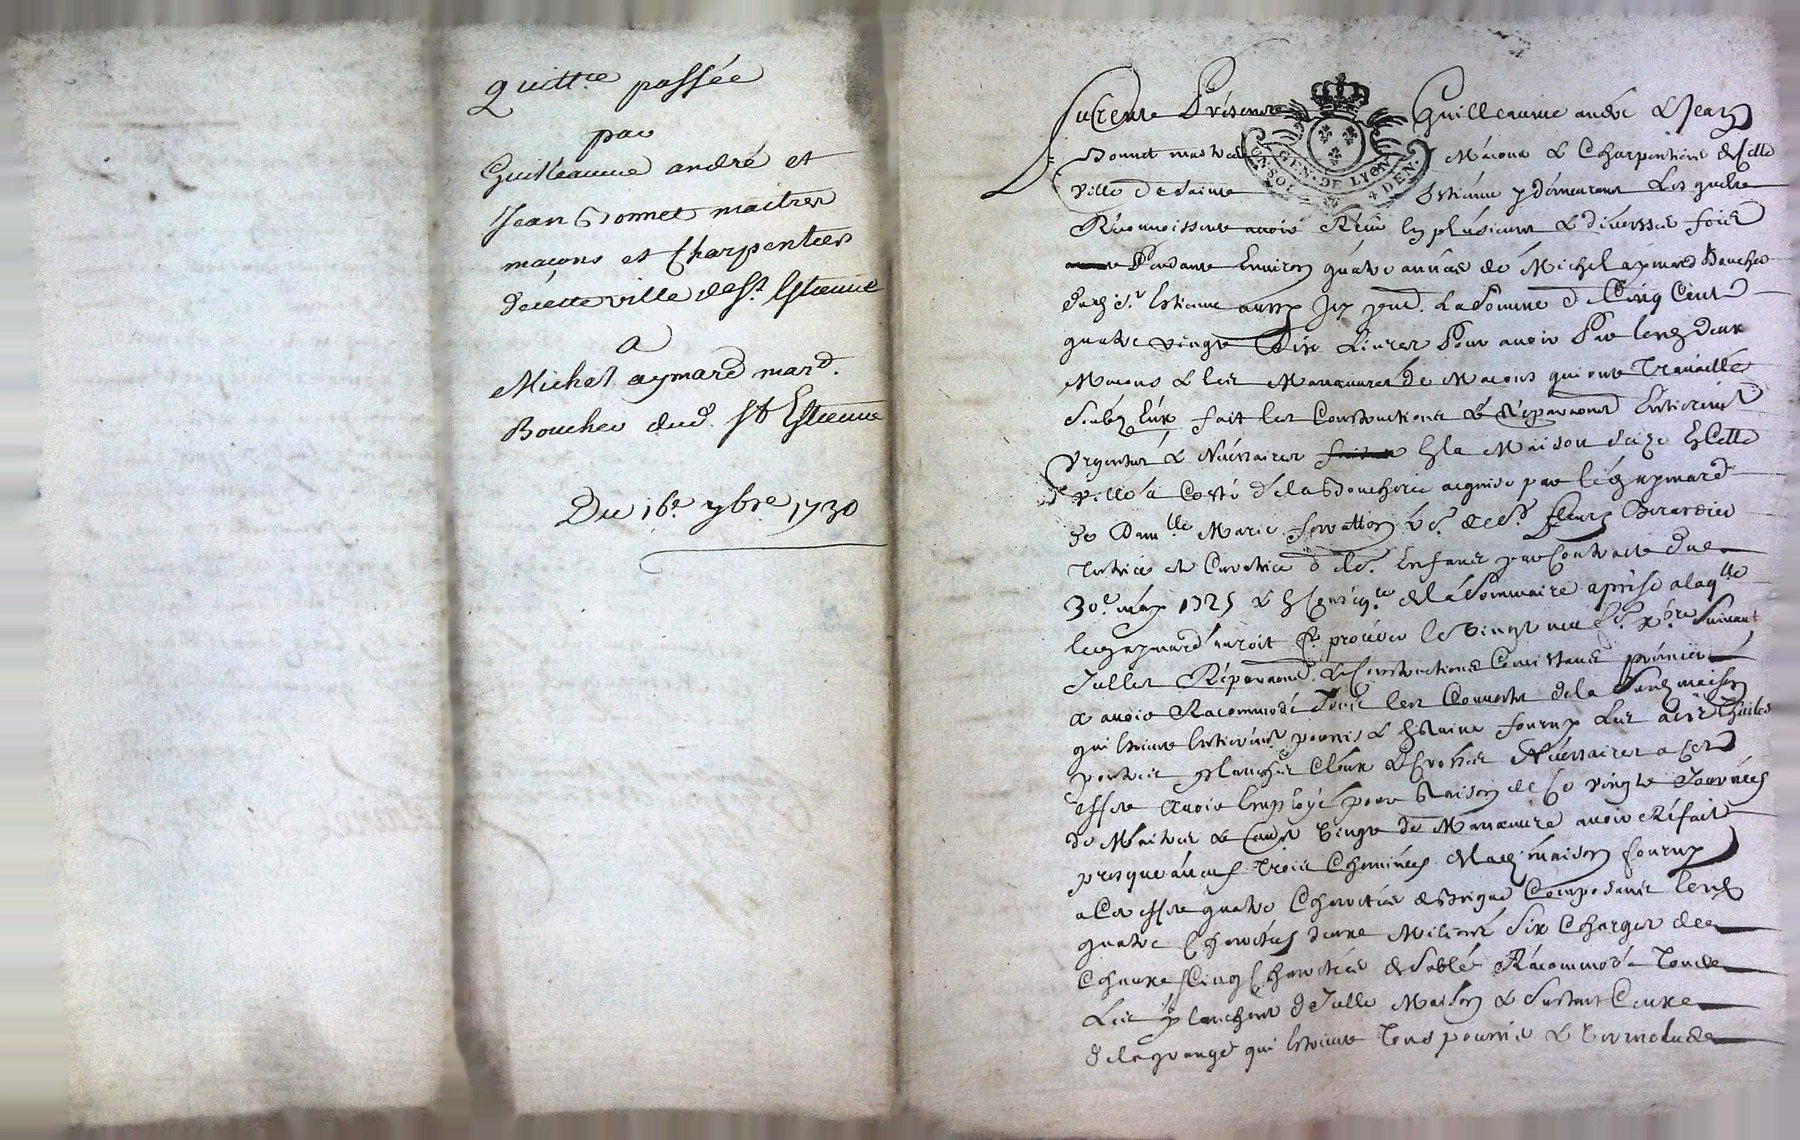 Quitt.ce passée
par
Guilleaume andré et
Jean Bonnet maitres
maçons et Charpentiers
decette ville de St. Estienne
a
Michel aymard mard.
Boucher dud. St Estienne
Du 16e. 7bre. 1730
Furent Présents Guilleaume andré & Jean
Bonnet maitres Macons & Charpentiers de cette
ville de Saint Estienne y demeurant Les quels
Réconnoissent avoir Réçeu en plusieurs & diverses fois
Pendant Environ quatre années de Michel aymard Boucher
dud. St. Estienne aussy La Somme de Cinq Cent
quatre vingt Dix Livres Pour avoir Par lesd. deux
Macons & les Manœuvres de Macons qui ont Travaillés
fait les Constructions & Réparaons Entierement
Urgentes & Nécessaires En la Maison size En Cette
ville à Costé de la Boucherie acquise par led. aymard
de Dam.lle Marie Ve. de Sr. Berardier
Tutrice et Curatrice de Ses. Enfans par Contract du
30e. may 1725 & de la Sommaire aprise a laq.lle
led. aymard auroit fe. proceder le vingt neuf xbre Suivant
Jcelles Réparaons. & Constructions Consistant prémierement
a avoir Racommodé Tous les Couverts de la Susd. maison
qui Estoient Entierement pourris & En Ruine fourny Les ais Thuiles
planches Cloux & Nécessaires a cet
effet avoir Employé pour Raison de Ce vingt Journées
de Maitres & vingt de Manœuvre avoir Réfait
presque a neuf Trois Cheminées de lad. maison fourny
a Cet effet quatre Charettées de Brique Composant lesd.
quatre Charettées deux Milliers Six Charges de
Chaux Cinq Charettées de Sable Racommodé Tous
Les planchers de Jcelle Maison & Surtout Ceux
de la grange qui Estoient Tous pourris & Vermoludes
GEN. DE LYON
UN. SOL
4 DEN.